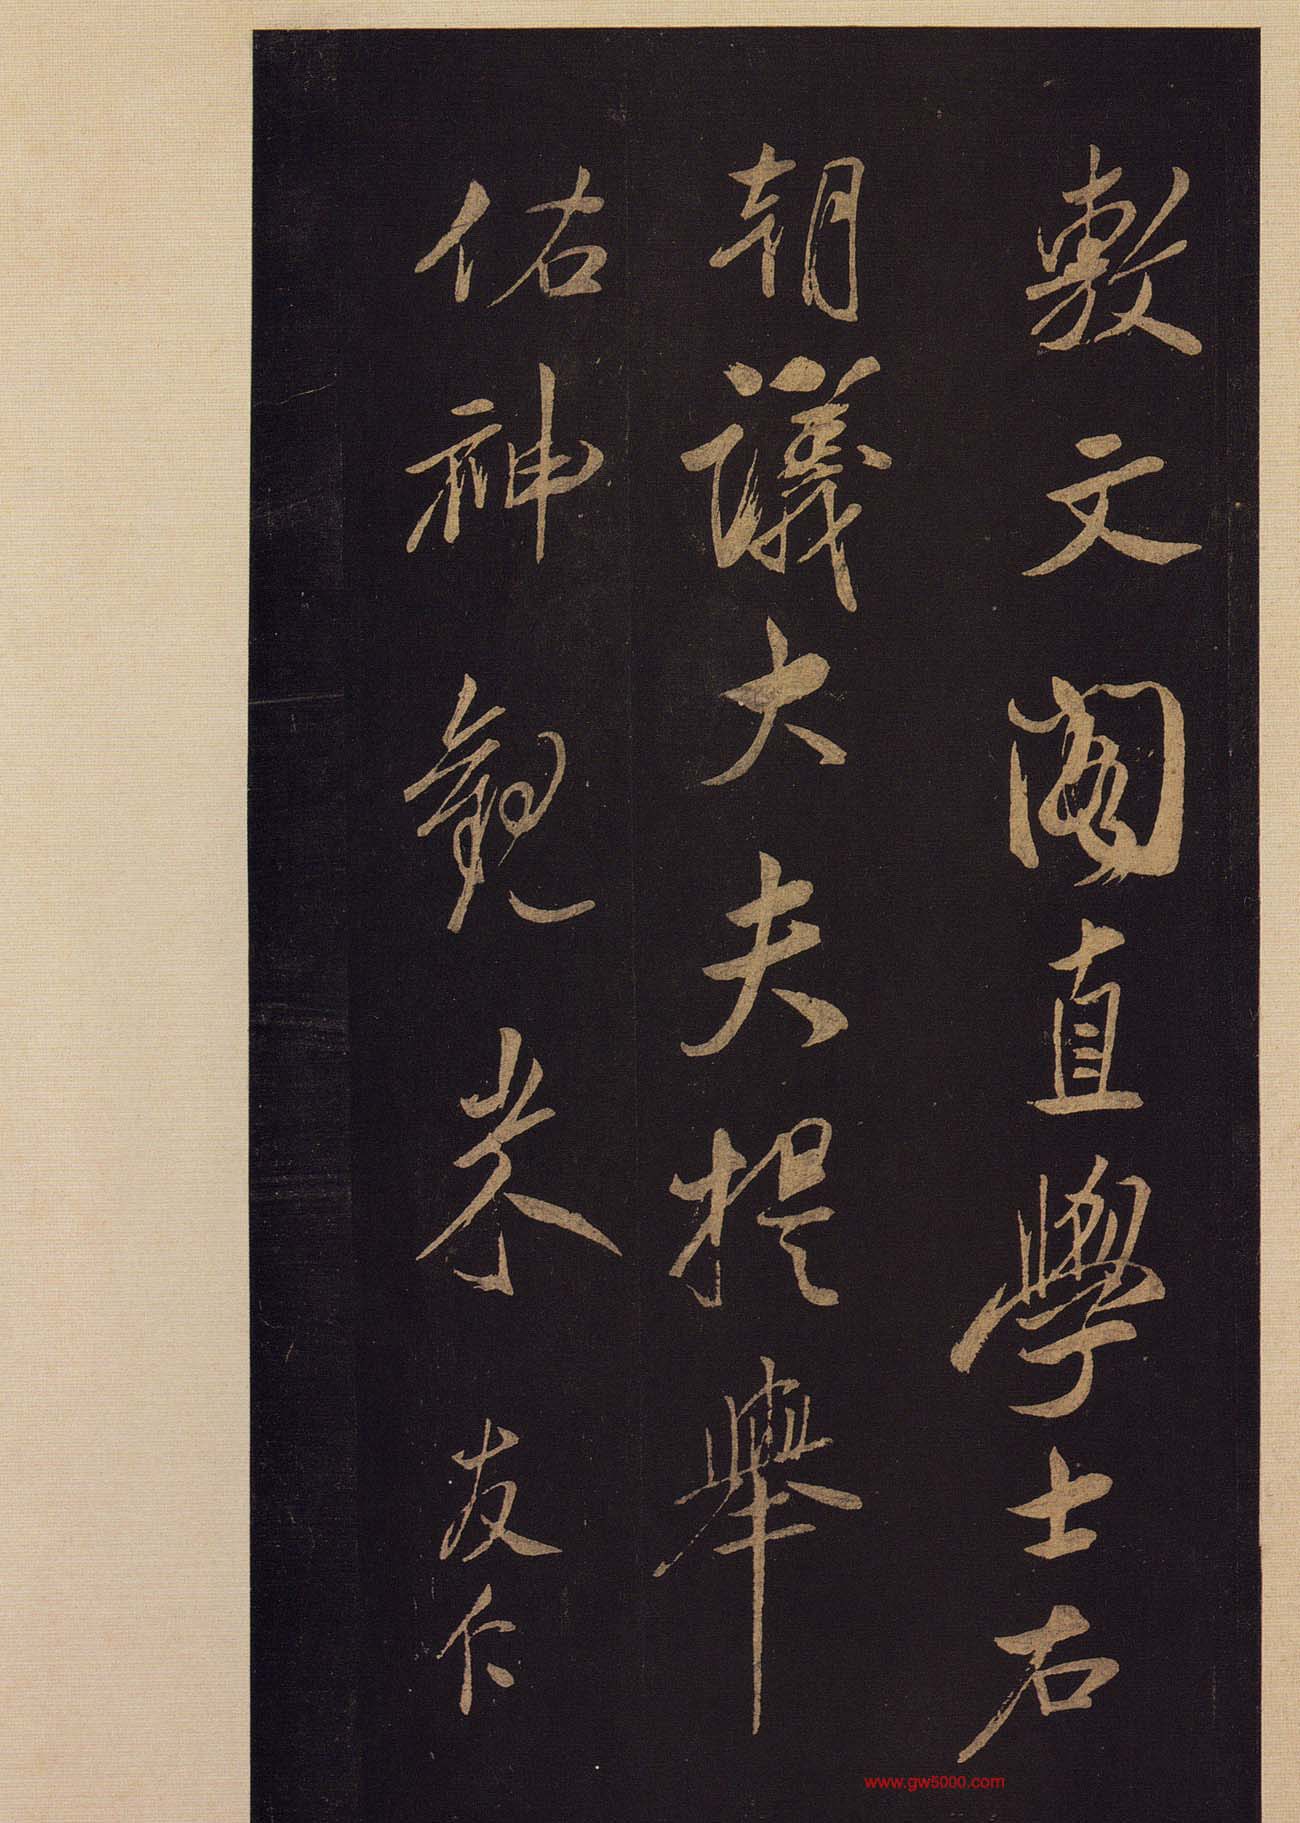 敷文閣直學士右
朝議大夫提舉
佑神觀米友仁
www.gw5000.com